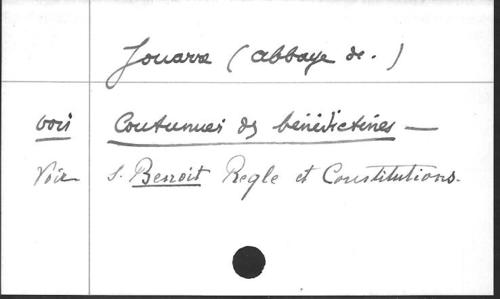 Jouarre (abbaye de.)
voir Coutumes des bénédictines —
Voir S. Benoit Regle et Constitutions.